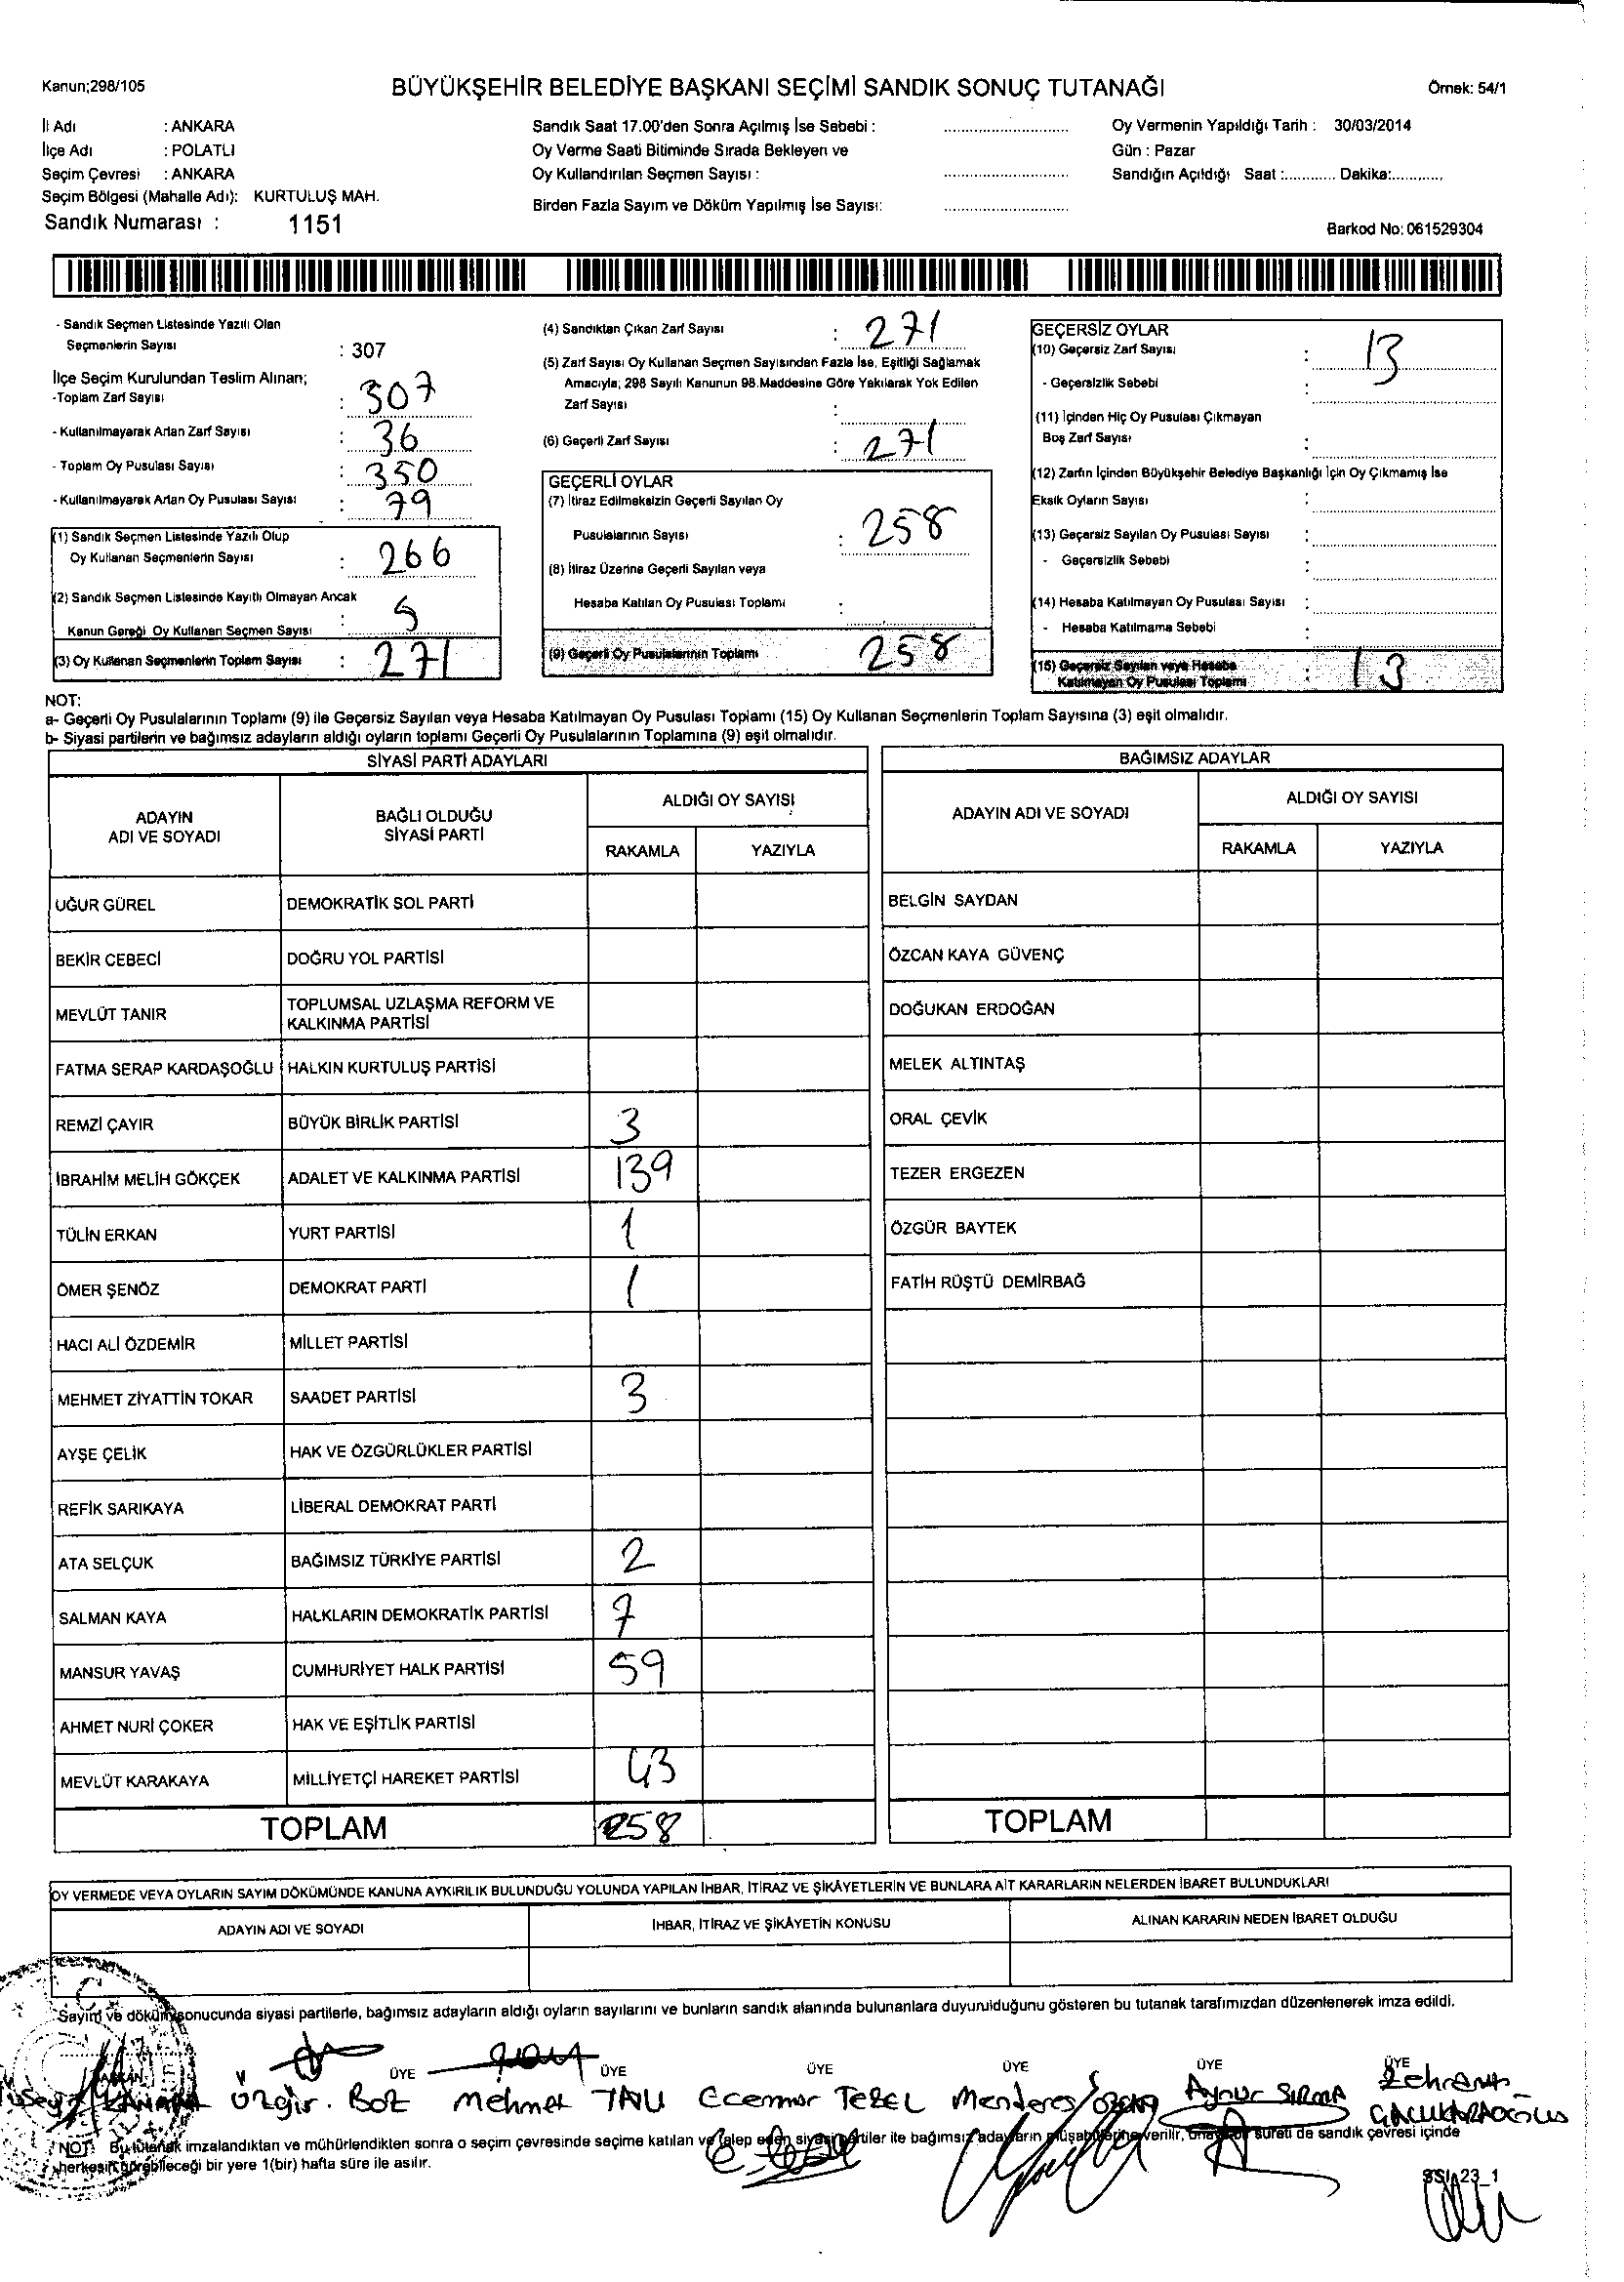 Kanun;298/105
BÜYÜKŞEHİR BELEDİYE BAŞKANI SEÇİMİ SANDIK SONUÇ TUTANAĞI
Örnek: 54/1
İl Adı : ANKARA
İlçe Adı : POLATLI
Seçim Çevresi : ANKARA
Seçim Bölgesi (Mahalle Adı): KURTULUŞ MAH.
Sandık Numarası : 1151
Sandık Saat 17.00'den Sonra Açılmış İse Sebebi :
Oy Verme Saati Bitiminde Sırada Bekleyen ve
Oy Kullandırılan Seçmen Sayısı :
Birden Fazla Sayım ve Döküm Yapılmış İse Sayısı:
Oy Vermenin Yapıldığı Tarih : 30/03/2014
Gün : Pazar
Sandığın Açıldığı Saat :............ Dakika:............
Barkod No: 061529304
- Sandık Seçmen Listesinde Yazılı Olan
Seçmenlerin Sayısı : 307
İlçe Seçim Kurulundan Teslim Alınan;
-Toplam Zarf Sayısı : 307
- Kullanılmayarak Artan Zarf Sayısı : 36
- Toplam Oy Pusulası Sayısı : 350
- Kullanılmayarak Artan Oy Pusulası Sayısı : 79
(1) Sandık Seçmen Listesinde Yazılı Olup
Oy Kullanan Seçmenlerin Sayısı : 266
(2) Sandık Seçmen Listesinde Kayıtlı Olmayan Ancak
Kanun Gereği Oy Kullanan Seçmen Sayısı : 5
(3) Oy Kullanan Seçmenlerin Toplam Sayısı : 271
(4) Sandıktan Çıkan Zarf Sayısı : 271
(5) Zarf Sayısı Oy Kullanan Seçmen Sayısından Fazla İse, Eşitliği Sağlamak
Amacıyla; 298 Sayılı Kanunun 98.Maddesine Göre Yakılarak Yok Edilen
Zarf Sayısı :
(6) Geçerli Zarf Sayısı : 271
GEÇERLİ OYLAR
(7) İtiraz Edilmeksizin Geçerli Sayılan Oy
Pusulalarının Sayısı : 258
(8) İtiraz Üzerine Geçerli Sayılan veya
Hesaba Katılan Oy Pusulası Toplamı :
(9) Geçerli Oy Pusulalarının Toplamı 258
GEÇERSİZ OYLAR
(10) Geçersiz Zarf Sayısı : 13
- Geçersizlik Sebebi :
(11) İçinden Hiç Oy Pusulası Çıkmayan
Boş Zarf Sayısı :
(12) Zarfın İçinden Büyükşehir Belediye Başkanlığı İçin Oy Çıkmamış İse
Eksik Oyların Sayısı :
(13) Geçersiz Sayılan Oy Pusulası Sayısı :
- Geçersizlik Sebebi :
(14) Hesaba Katılmayan Oy Pusulası Sayısı :
- Hesaba Katılmama Sebebi :
(15) Geçersiz Sayılan veya Hesaba
Katılmayan Oy Pusulası Toplamı : 13
NOT:
a- Geçerli Oy Pusulalarının Toplamı (9) ile Geçersiz Sayılan veya Hesaba Katılmayan Oy Pusulası Toplamı (15) Oy Kullanan Seçmenlerin Toplam Sayısına (3) eşit olmalıdır.
b- Siyasi partilerin ve bağımsız adayların aldığı oyların toplamı Geçerli Oy Pusulalarının Toplamına (9) eşit olmalıdır.
SİYASİ PARTİ ADAYLARI
ADAYIN ADI VE SOYADI
BAĞLI OLDUĞU SİYASİ PARTİ
ALDIĞI OY SAYISI
RAKAMLA YAZIYLA
UĞUR GÜREL DEMOKRATİK SOL PARTİ
BEKİR CEBECİ DOĞRU YOL PARTİSİ
MEVLÜT TANIR TOPLUMSAL UZLAŞMA REFORM VE KALKINMA PARTİSİ
FATMA SERAP KARDAŞOĞLU HALKIN KURTULUŞ PARTİSİ
REMZİ ÇAYIR BÜYÜK BİRLİK PARTİSİ 3
İBRAHİM MELİH GÖKÇEK ADALET VE KALKINMA PARTİSİ 139
TÜLİN ERKAN YURT PARTİSİ 1
ÖMER ŞENÖZ DEMOKRAT PARTİ 1
HACI ALİ ÖZDEMİR MİLLET PARTİSİ
MEHMET ZİYATTİN TOKAR SAADET PARTİSİ 3
AYŞE ÇELİK HAK VE ÖZGÜRLÜKLER PARTİSİ
REFİK SARIKAYA LİBERAL DEMOKRAT PARTİ
ATA SELÇUK BAĞIMSIZ TÜRKİYE PARTİSİ 2
SALMAN KAYA HALKLARIN DEMOKRATİK PARTİSİ 7
MANSUR YAVAŞ CUMHURİYET HALK PARTİSİ 59
AHMET NURİ ÇOKER HAK VE EŞİTLİK PARTİSİ
MEVLÜT KARAKAYA MİLLİYETÇİ HAREKET PARTİSİ 43
TOPLAM 258
BAĞIMSIZ ADAYLAR
ADAYIN ADI VE SOYADI
ALDIĞI OY SAYISI
RAKAMLA YAZIYLA
BELGİN SAYDAN
ÖZCAN KAYA GÜVENÇ
DOĞUKAN ERDOĞAN
MELEK ALTINTAŞ
ORAL ÇEVİK
TEZER ERGEZEN
ÖZGÜR BAYTEK
FATİH RÜŞTÜ DEMİRBAĞ
TOPLAM
OY VERMEDE VEYA OYLARIN SAYIM DÖKÜMÜNDE KANUNA AYKIRILIK BULUNDUĞU YOLUNDA YAPILAN İHBAR, İTİRAZ VE ŞİKÂYETLERİN VE BUNLARA AİT KARARLARIN NELERDEN İBARET BULUNDUKLARI
ADAYIN ADI VE SOYADI
İHBAR, İTİRAZ VE ŞİKÂYETİN KONUSU
ALINAN KARARIN NEDEN İBARET OLDUĞU
Sayım ve döküm sonucunda siyasi partilerle, bağımsız adayların aldığı oyların sayılarını ve bunların sandık alanında bulunanlara duyurulduğunu gösteren bu tutanak tarafımızdan düzenlenerek imza edildi.
ÜYE ÜYE ÜYE ÜYE ÜYE ÜYE
Mehmet Menderes Aynur
NOT: Bu tutanak imzalandıktan ve mühürlendikten sonra o seçim çevresinde seçime katılan ve talep eden siyasi partiler ile bağımsız adayların müşahitlerine verilir, sureti de sandık çevresi içinde
herkesin görebileceği bir yere 1(bir) hafta süre ile asılır.